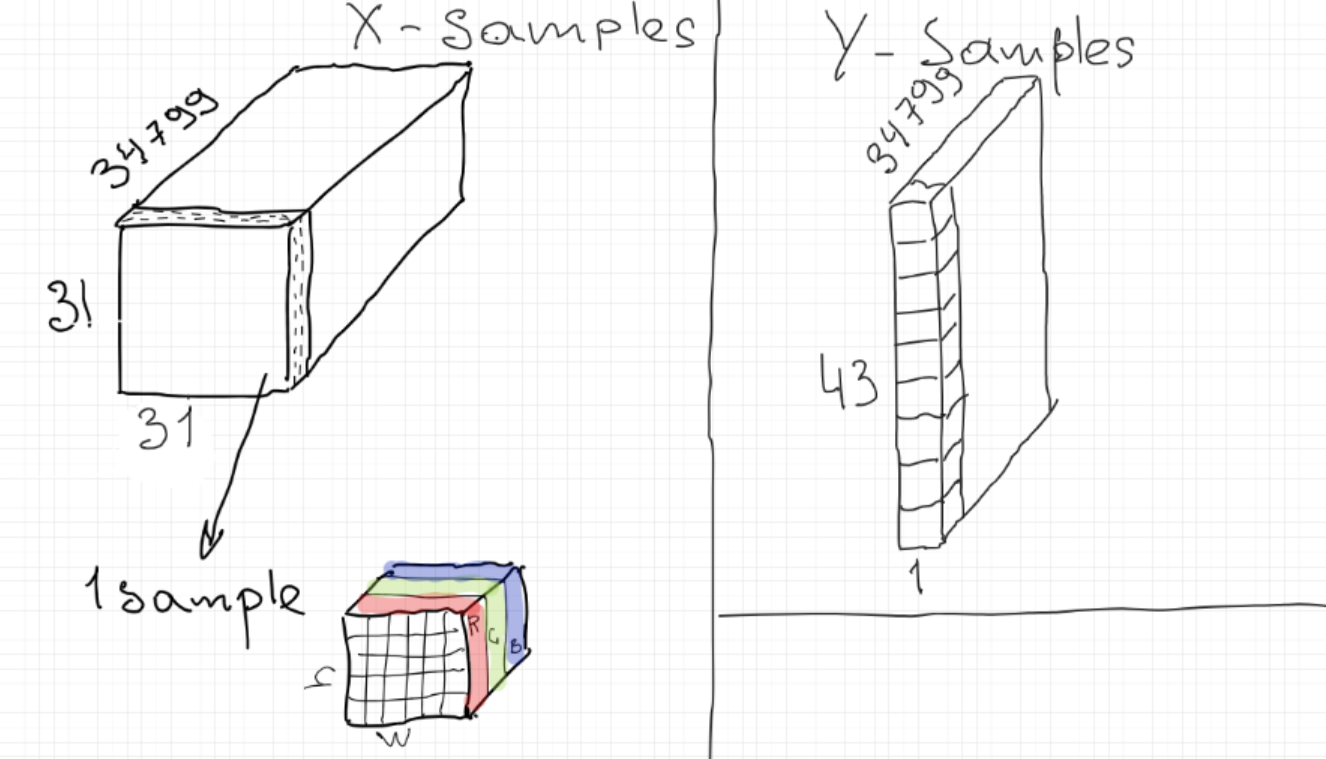 X-Samples
34799
31
31
1 sample
R
G
B
h
W
Y-Samples
34799
43
1